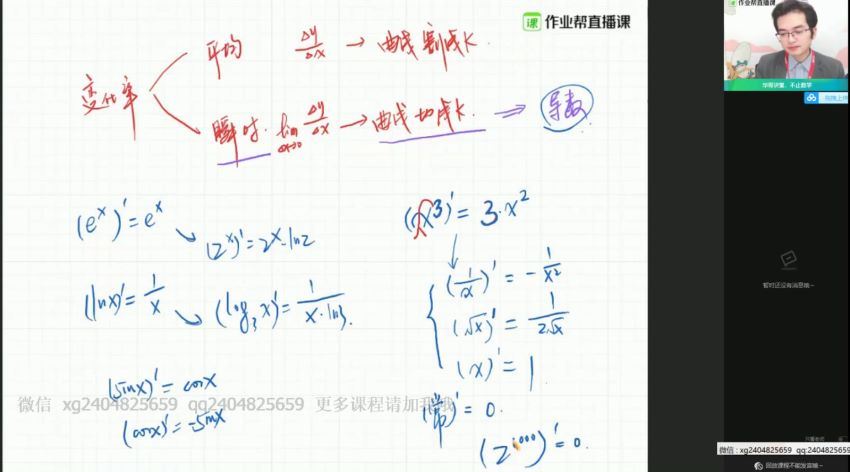 作业帮直播课
作业帮直播课
变化率
平均 Δy/Δx → 曲线割线K.
瞬时. lim Δx→0 Δy/Δx → 曲线切线K. ⇒ 导数
(e^x)' = e^x
(2^x)' = 2^x·ln2
(lnx)' = 1/x
(log₃x)' = 1/(x·ln3).
(sinx)' = cosx
(cosx)' = -sinx
(x³)' = 3·x²
(1/x)' = -1/x²
(√x)' = 1/(2√x)
(x)' = 1
(常)' = 0.
(2^1000)' = 0.
微信 xg2404825659 qq2404825659 更多课程请加我哦
暂时还没有消息哦~
微信:xg2404825659 qq:2404825659
回放课程不能发言哦~